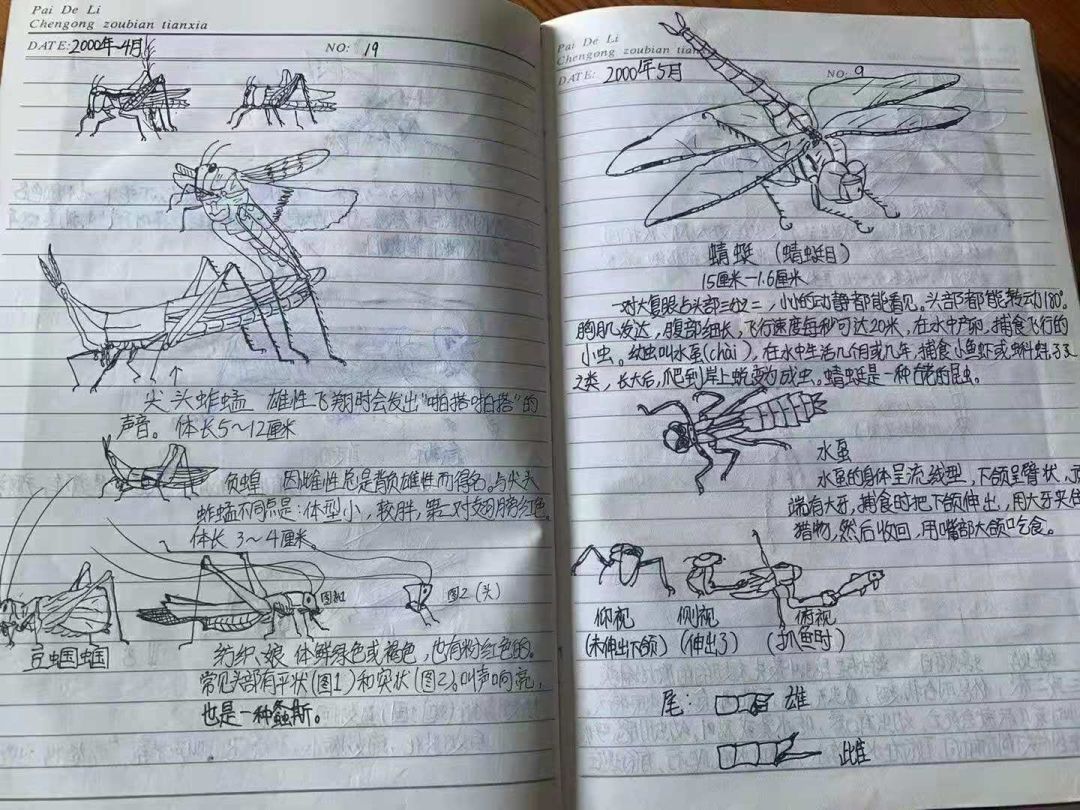 Pai De Li
Chengong zoubian tianxia
DATE: 2000年4月 NO: 19
尖头蚱蜢 雄性飞翔时会发出“啪搭啪搭”的
声音。体长5~12厘米
负蝗 因雌性总是背负雄性而得名。与尖头
蚱蜢不同点是:体型小,较胖,第二对翅膀红色。
体长 3~4厘米。
图1
图2(头)
豆蝈蝈
纺织娘 体鲜绿色或褐色,也有粉红色的。
常见头部有平状(图1)和尖状(图2)。叫声响亮,
也是一种螽斯。
Pai De Li
Chengong zoubian tianxia
DATE: 2000年5月 NO: 9
蜻蜓 (蜻蜓目)
15厘米-1.6厘米
一对大复眼占头部三分之二,小小的动静都能看见。头部都能转动180°。
胸肌发达,腹部细长,飞行速度每秒可达20米,在水中产卵,捕食飞行的
小虫。幼虫叫水虿(chài),在水中生活几个月或几年,捕食小鱼虾或蝌蚪,孑孓
之类,长大后,爬到岸上蜕变为成虫。蜻蜓是一种古老的昆虫。
水虿
水虿的身体呈流线型,下颌呈臂状,
端有大牙,捕食时把下颌伸出,用大牙夹住
猎物,然后收回,用嘴部大颌吃食。
仰视 侧视 俯视
(未伸出下颌) (伸出了) (抓鱼时)
尾: 雄
雌